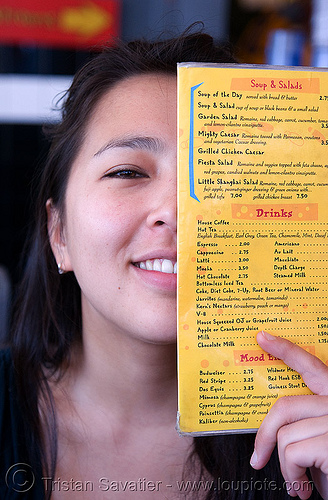 Soup & Salads
Soup of the Day served with bread & butter 2.7
Soup & Salad cup of soup or black beans & a small salad
Garden Salad Romaine, red cabbage, carrot, cucumber, tomato
and lemon-cilantro vinaigrette. 3.5
Mighty Caesar Romaine tossed with Parmesan, croutons
and vegetarian Caesar dressing. 3.5
Grilled Chicken Caesar
Fiesta Salad Romaine and veggies topped with feta cheese,
red grapes, candied walnuts and lemon-cilantro vinaigrette.
Little Shanghai Salad Romaine, red cabbage, carrot,
fuji apple, peanut-ginger dressing & green onions with...
grilled tofu 7.00 grilled chicken breast 7.50
Drinks
House Coffee
Hot Tea
English Breakfast, Earl Grey, Green Tea, Chamomile, Mint, Decaf
Espresso 2.00 Americano
Cappuccino 2.75 Au Lait
Latte 3.00 Macchiato
Mocha 3.50 Depth Charge
Hot Chocolate 2.75 Steamed Milk
Bottomless Iced Tea
Coke, Diet Coke, 7-Up, Root Beer or Mineral Water
Jarritos (mandarine, watermelon, tamarindo)
Kern's Nectars (strawberry, peach or mango)
V-8
House Squeezed OJ or Grapefruit Juice 2.00
Apple or Cranberry Juice 1.50
Milk 1.50
Chocolate Milk 1.75
Mood
Budweiser 2.75 Widmer
Red Stripe 3.25 Red Hook ESB
Dos Equis 3.25 Guiness Stout
Mimosa (champagne & orange juice)
Cyprus (champagne & grapefruit)
Poinsettia (champagne &
Kaliber (non-alcoholic)
© Tristan Savatier - www.loupiote.com